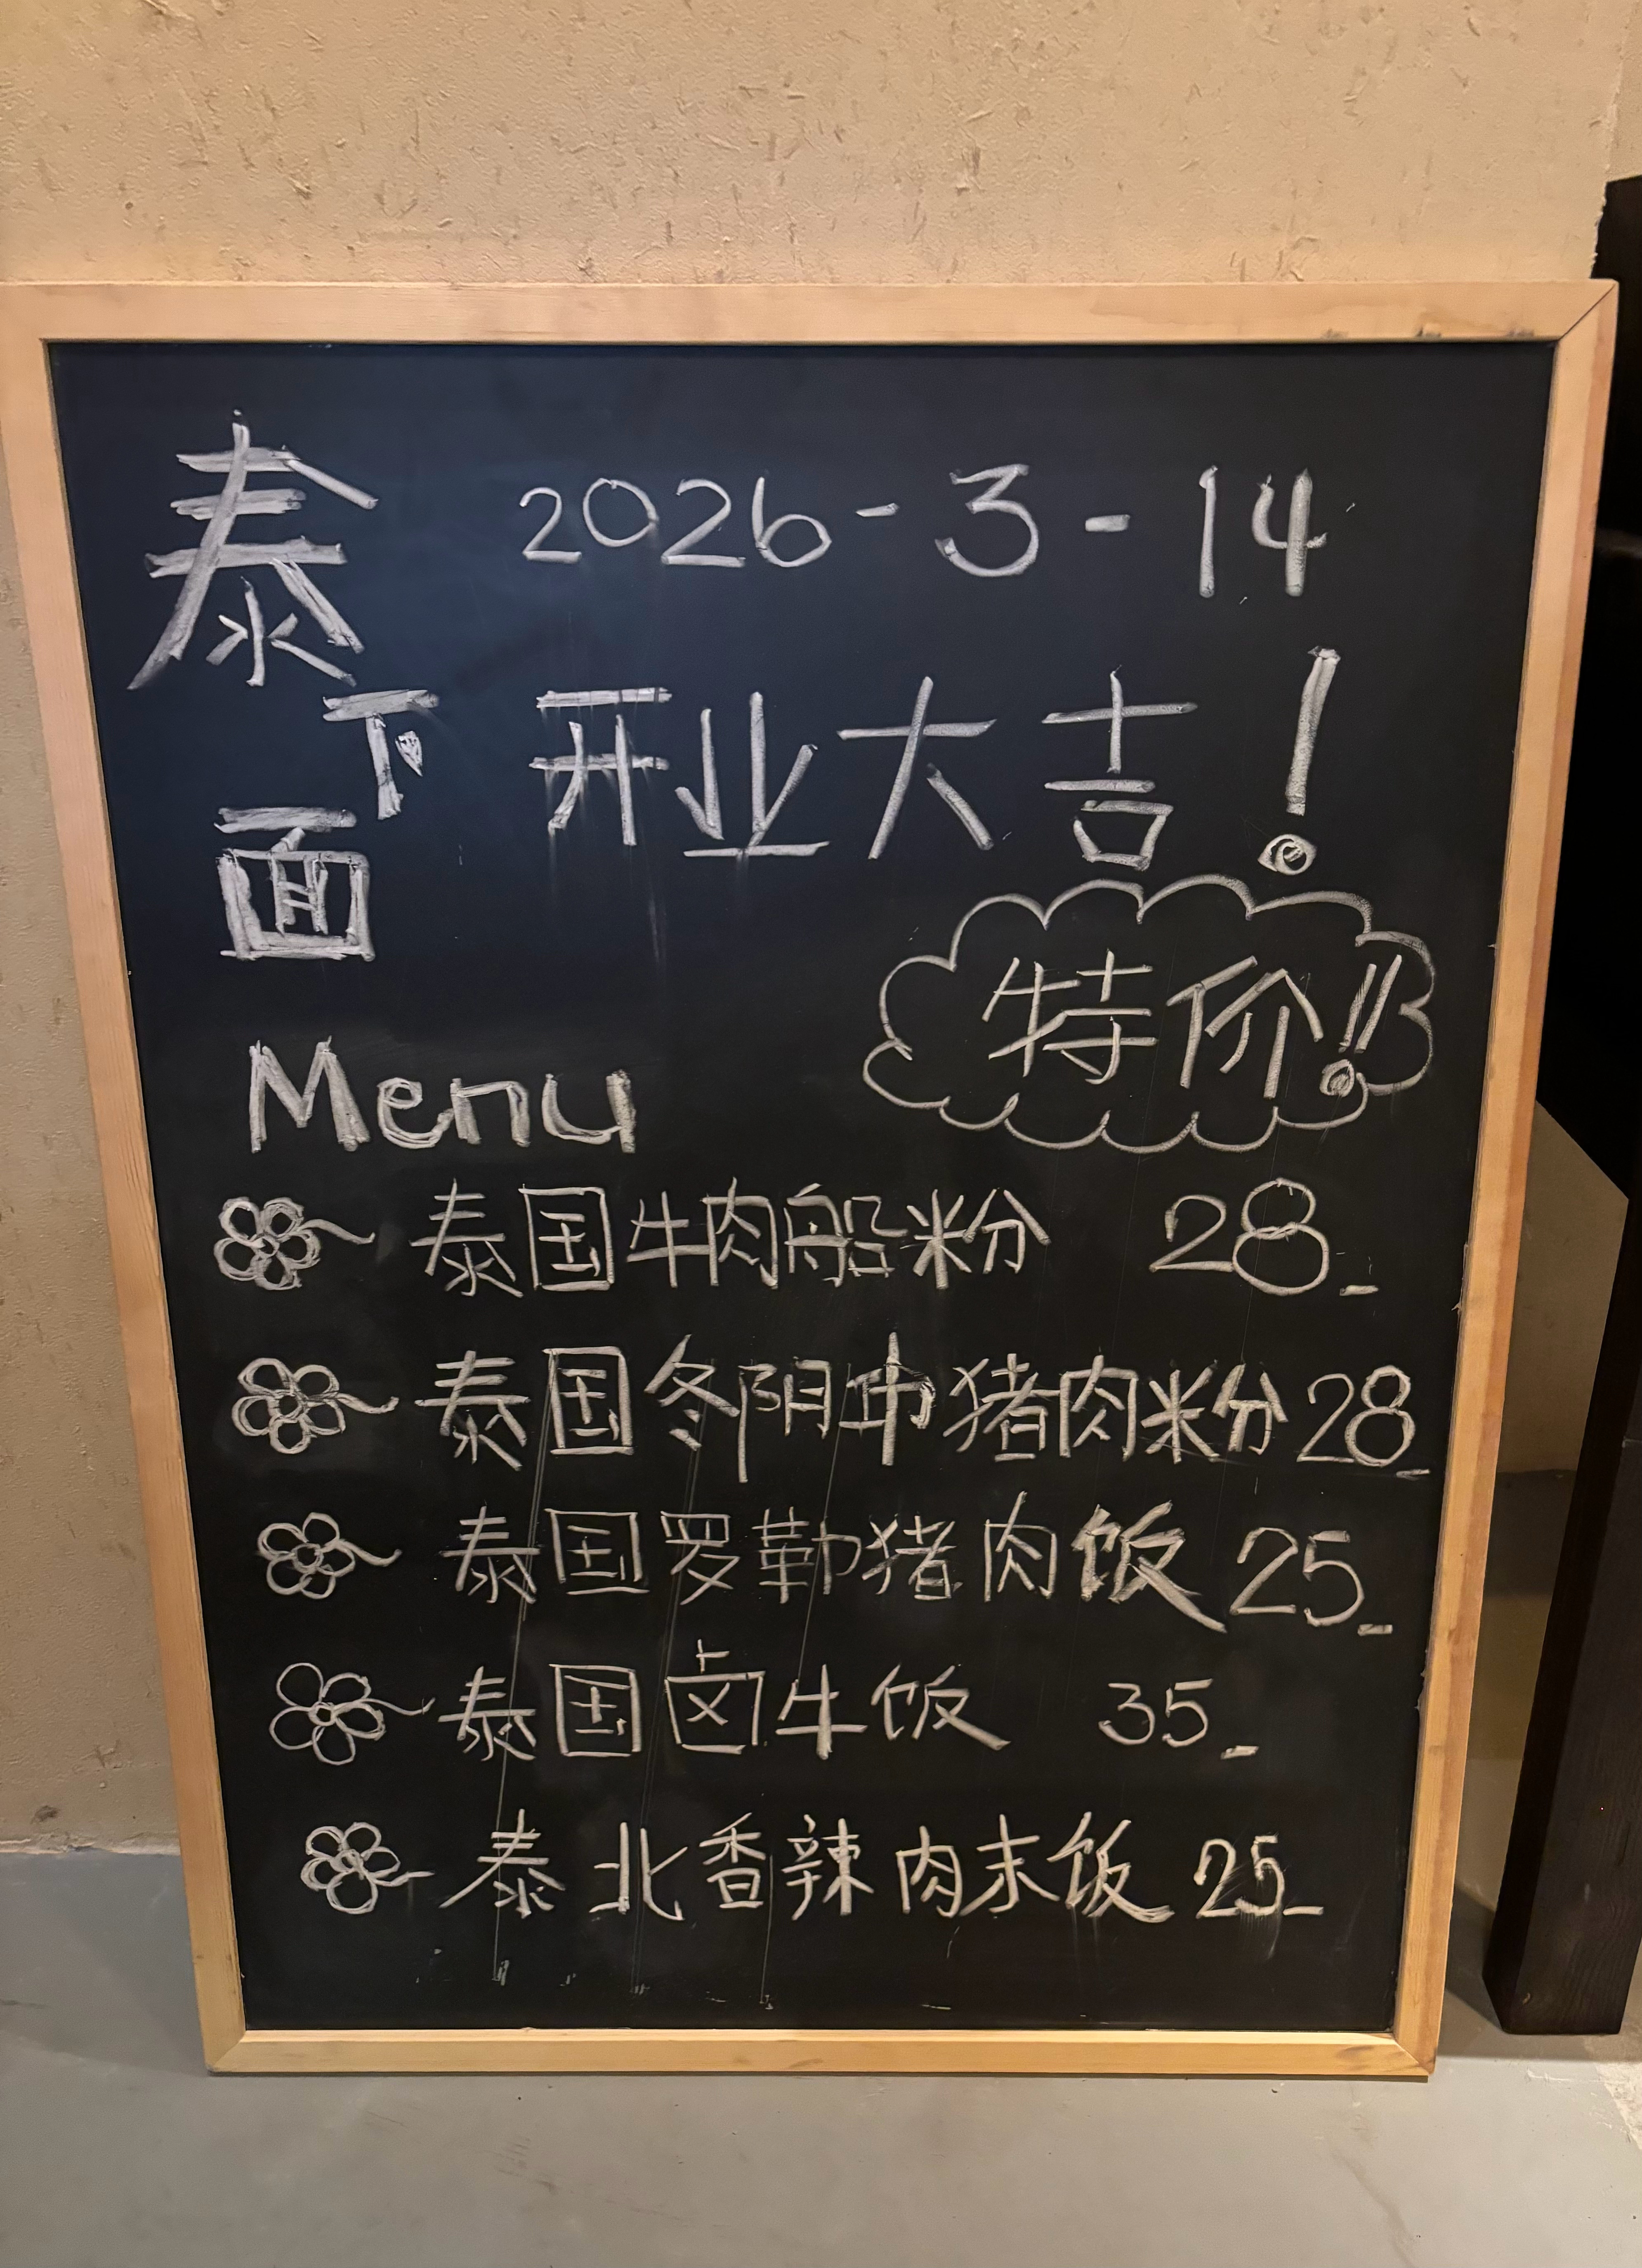 泰下面
2026-3-14
开业大吉!
特价!!
Menu
泰国牛肉船粉 28_
泰国冬阴中猪肉米分 28_
泰国罗勒猪肉饭 25_
泰国卤牛饭 35_
泰北香辣肉末饭 25_